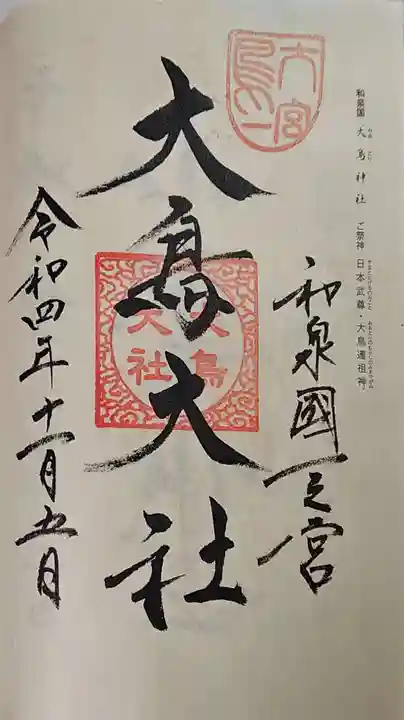 和泉国 大鳥神社 ご祭神 日本武尊・大鳥連祖神
和泉國一之宮
大鳥大社
大鳥大社
令和四年十一月五日